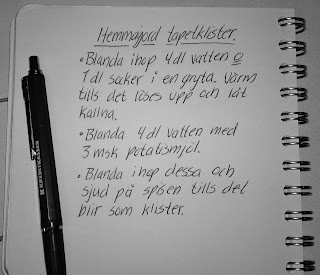 Hemmagjord tapetklister.
• Blanda ihop 4 dl vatten o
1 dl socker i en gryta. Värm
tills det löses upp och låt
kallna.
• Blanda 4 dl vatten med
3 msk potatismjöl.
• Blanda ihop dessa och
sjud på spisen tills det
blir som klister.